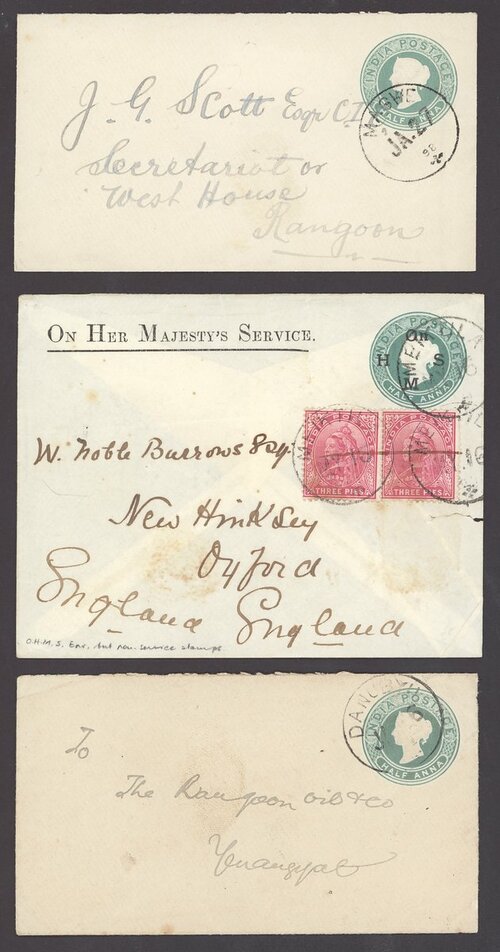 INDIA POSTAGE
HALF ANNA
MAGWE
JA. 27
98
J. G. Scott Esqr C.I.
Secretariat or
West House
Rangoon
ON HER MAJESTY'S SERVICE.
INDIA POSTAGE
On
H S
M
HALF ANNA
W. Noble Burrows Esq.
THREE PIES. THREE PIES.
New Hinksey
Oxford
England England
O.H.M.S. Env. but non-service stamps
INDIA POSTAGE
HALF ANNA
To
The Rangoon oil & co